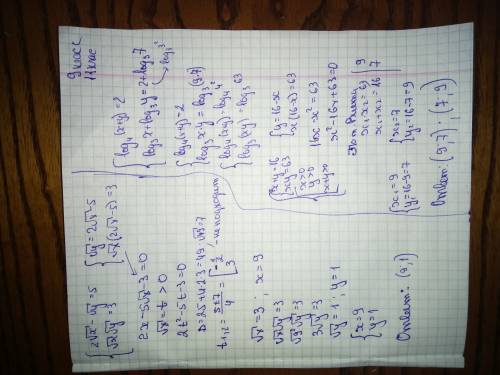 9 класс
11 клас
{ 2√x - √y = 5
{ √x√y = 3
{ √y = 2√x - 5
{ √x(2√x - 5) = 3
2x - 5√x - 3 = 0
√x = t > 0
2t² - 5t - 3 = 0
D = 25 + 4·2·3 = 49, √D = 7
t₁,₂ = (5±7)/4 = [ -1/2 - не подходит
3
√x = 3 ; x = 9
√x√y = 3
√9√y = 3
3√y = 3
√y = 1 ; y = 1
{ x = 9
{ y = 1
Ответ: (9;1)
{ log₄(x+y) = 2
{ log₃x + log₃y = 2 + log₃7
log₃3²
{ log₄(x+y) = 2
{ log₃x·y = log₃(9·7)
{ log₄(x+y) = log₄4²
{ log₃(xy) = log₃63
{ x+y = 16
{ xy = 63
{ x>0
{ y>0
{ x+y>0
{ y = 16-x
{ x(16-x) = 63
16x - x² = 63
x² - 16x + 63 = 0
x₁·x₂ = 63 | 9
x₁+x₂ = 16 | 7
{ x₁ = 9
{ y₁ = 16-9 = 7
{ x₂ = 7
{ y₂ = 16-7 = 9
Ответ: (9;7) ; (7;9)